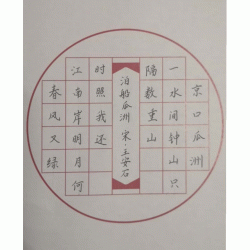 泊船瓜洲 宋·王安石
京口瓜洲
一水间钟山只
隔数重山
春风又绿
江南岸明月何
时照我还